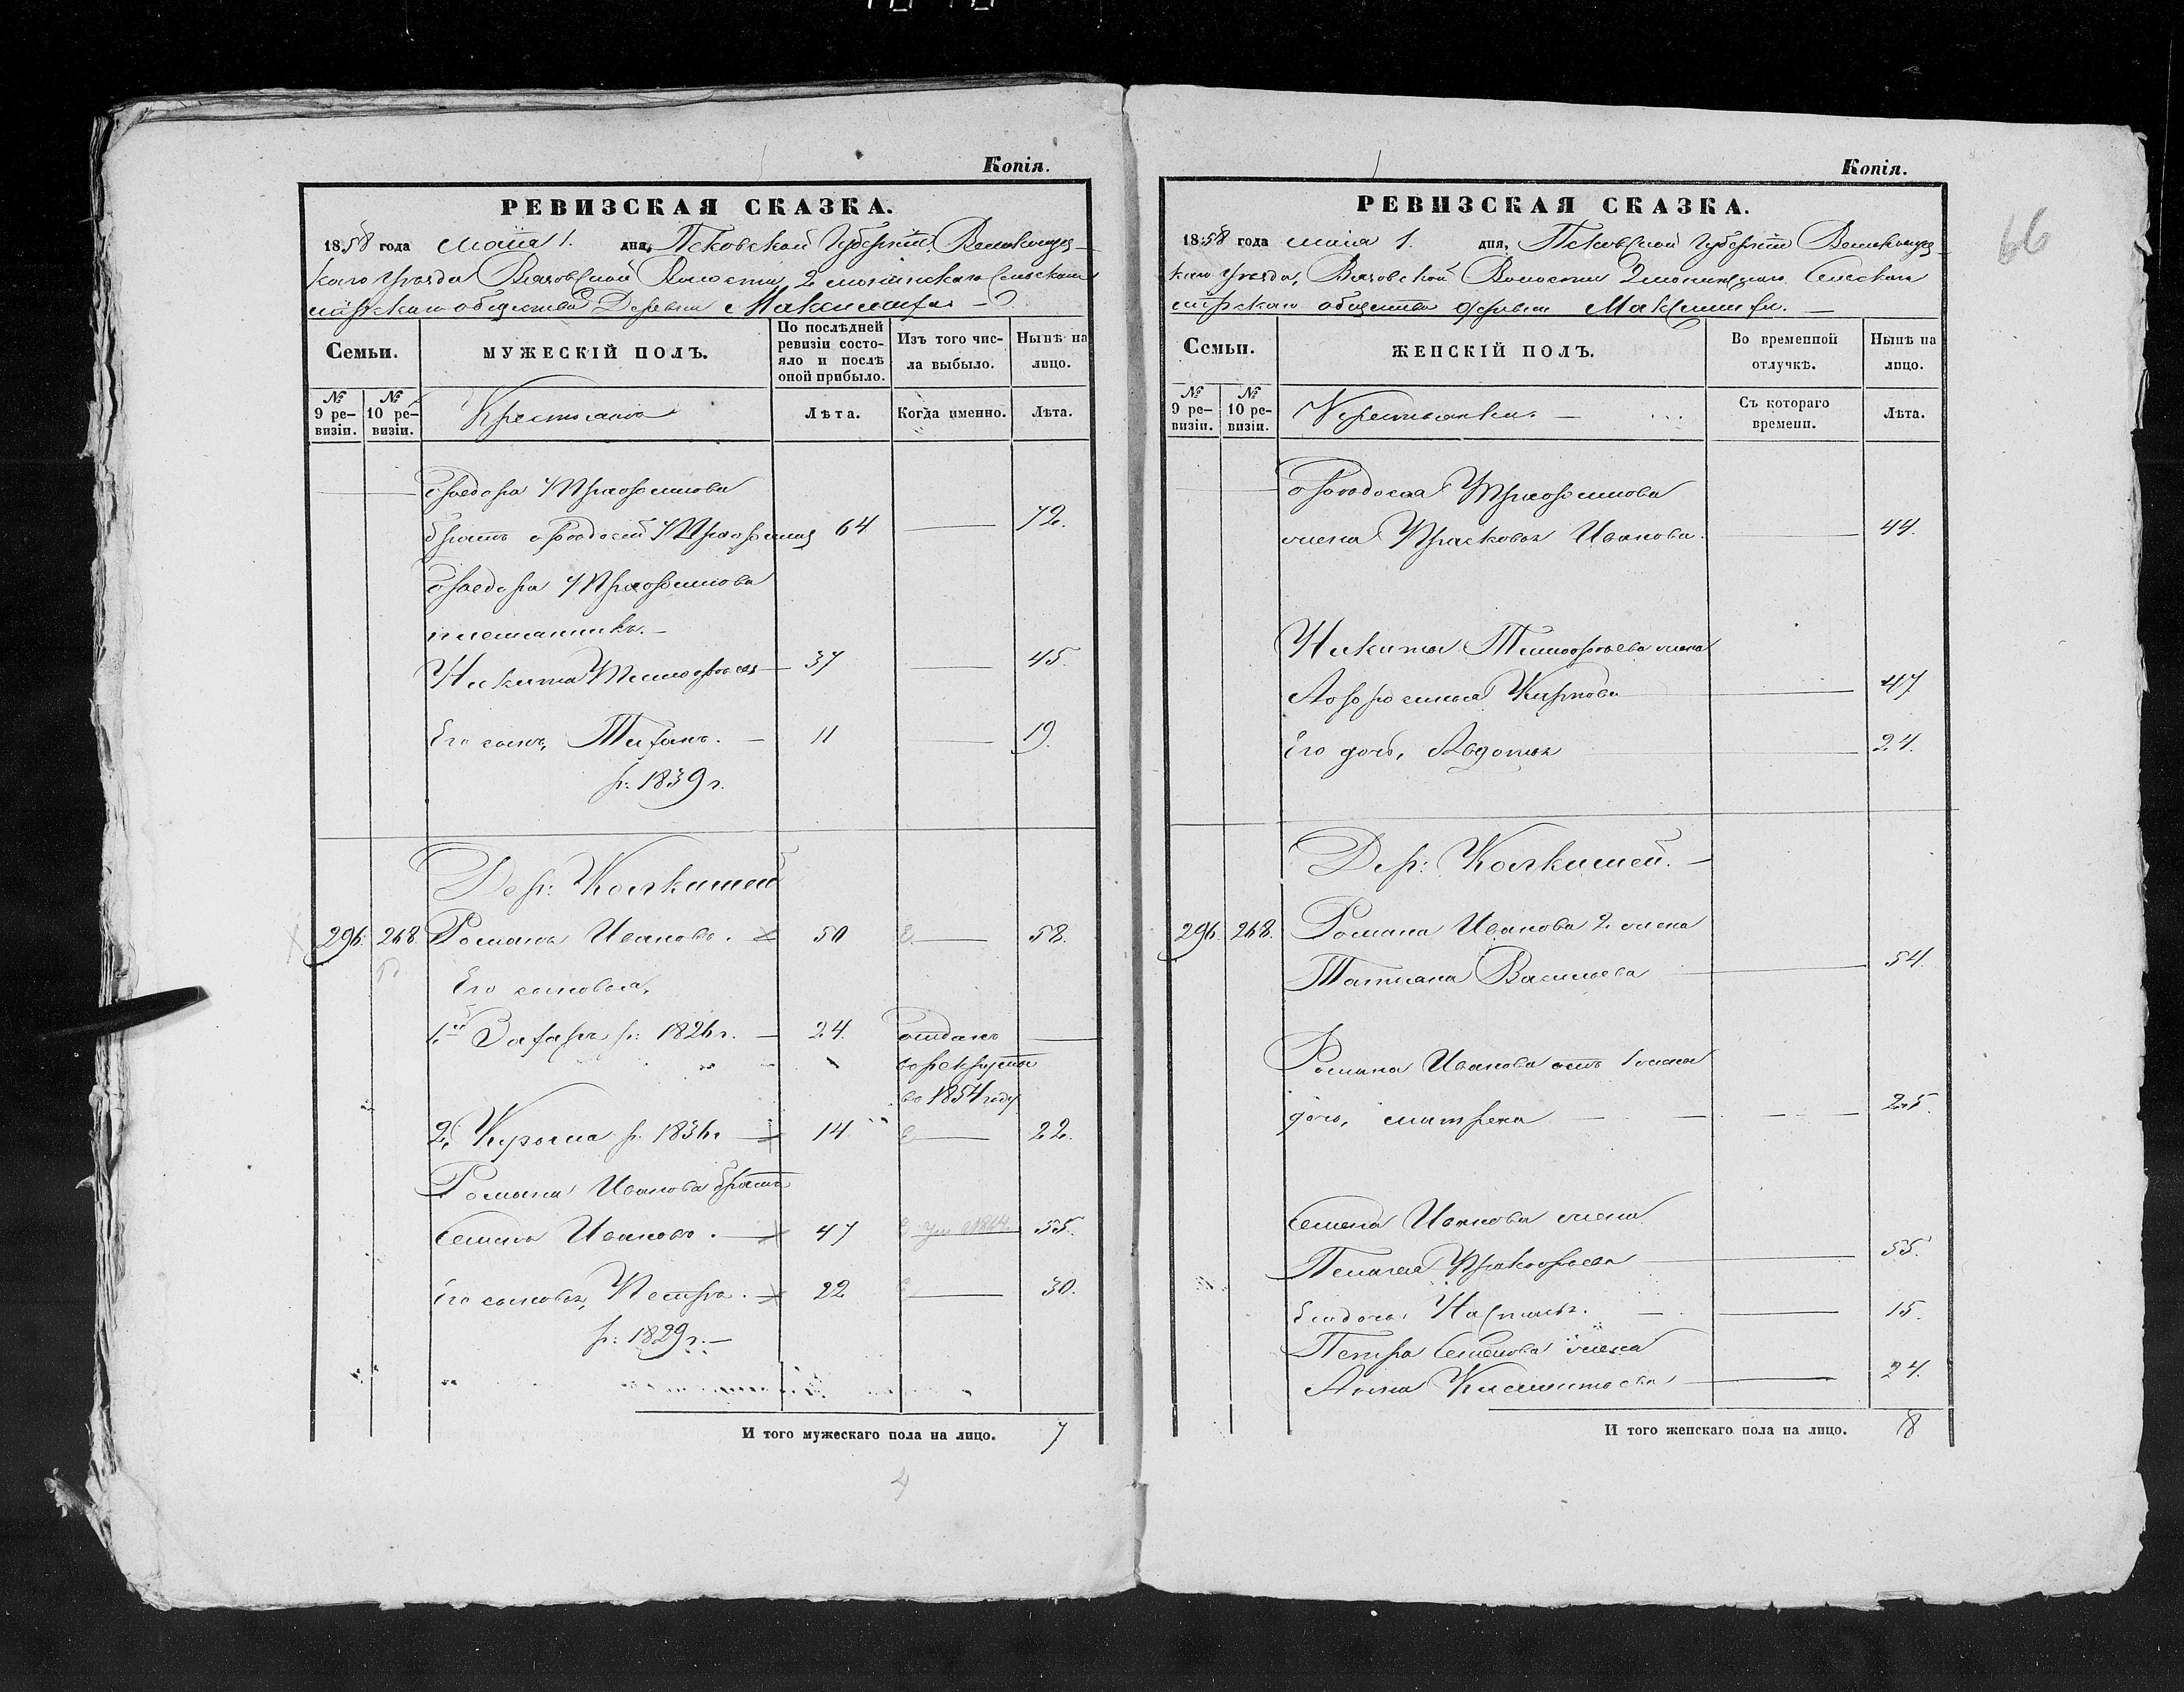 Копія.
РЕВИЗСКАЯ СКАЗКА.
1858 года Маія 1. дня, Псковской Губерніи Великолуц-
каго Уѣзда Вязовской Волости, 2 Сельскаго
мірскаго общества Деревни
Семьи.
МУЖЕСКІЙ ПОЛЪ.
По послѣдней ревизіи состояло и послѣ оной прибыло.
Изъ того числа выбыло.
Нынѣ на лицо.
№ 9 ревизіи.
№ 10 ревизіи.
Крестьяне
Лѣта.
Когда именно.
Лѣта.
Ѳедора Трофимова
братъ Ѳеодосій 64 72.
Ѳедора Трофимова
племянникъ.
Никита Тимофѣевъ 37 45.
Его сынъ, 11 19.
р: 1839 г.
Дер:
296. 268. Романъ Ивановъ. 50 58.
Его сыновья,
1й Захаръ р: 1826 г. 24. отданъ
въ рекруты
въ 1854 году
2й Кузьма р. 1836 г 14. 22.
Романа Иванова братъ
Семенъ Ивановъ. 47 55.
Его сыновья, Петръ. 22 30.
р: 1829 г.
И того мужескаго пола на лицо. 7
4
Копія.
66
РЕВИЗСКАЯ СКАЗКА.
1858 года Маія 1. дня, Псковской Губерніи Великолуц-
каго Уѣзда, Вязовской Волости Сельскаго
мірскаго общества деревни
Семьи.
ЖЕНСКІЙ ПОЛЪ.
Во временной отлучкѣ.
Нынѣ на лицо.
№ 9 ревизіи.
№ 10 ревизіи.
Крестьянки.
Съ котораго времени.
Лѣта.
Ѳеодосія Трофимова
жена Прасковья Иванова. 44.
Никиты Тимофѣева жена
Афросинья Карпова 47
Его дочь, Авдотья 24.
Дер:
296. 268. Романа Иванова 2. жена
Татьяна Васильева 54.
Романа Иванова отъ 1 жены
дочь, Матрена 25.
Семена Иванова жена
Пелагея Прокофьева 55.
Его дочь, Настасья. 15.
Петра Семенова жена
Анна Климентьева 24.
И того женскаго пола на лицо. 8